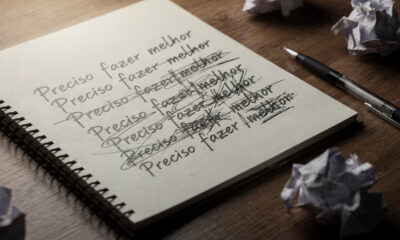 Preciso fazer melhor
Preciso fazer melhor
Preciso fazer melhor
Preciso fazer melhor
Preciso fazer melhor
Preciso fazer melhor
Preciso fazer melhor